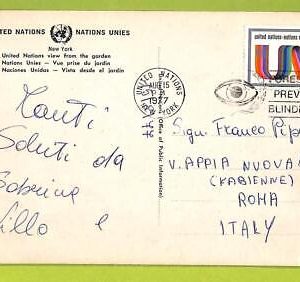 UNITED NATIONS NATIONS UNIES
New York
United Nations view from the garden
Nations Unies - Vue prise du jardin
Naciones Unidas - Vista desde el jardín
united nations-nations
UNITED NATIONS
15
1977
NEW YORK
PREV
BLIND
(Office of Public Information)
Tanti
Saluti da
Sabrina
e
Sign. Franco
V. APPIA NUOVA
(KABIENNE)
ROMA
ITALY